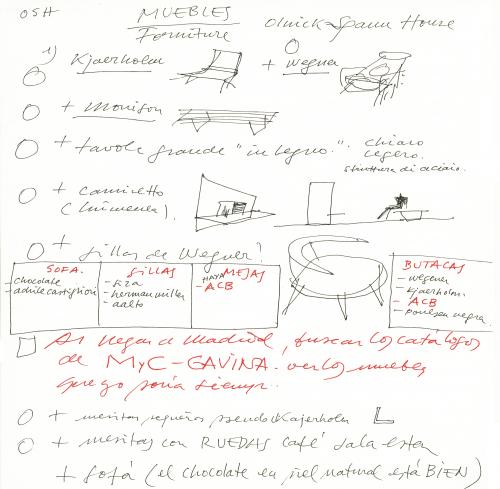 OSH MUEBLES Olnick-Spanu House
Forniture
1) Kjaerholm + Wegner
+ Morrison
+ tavole grande "in legno". chiaro
legero.
struttura di acciaio.
+ caminetto
(chimenea).
+ sillas de Wegner?
SOFA. SILLAS HAYA MESAS BUTACAS
- chocolate - siza - ACB - wegener
- achille castiglioni - herman miller - kjaerholm
- aalto - ACB
- ponerla negra.
Al llegar a Madrid, buscar los catálogos
de MyC-GAVINA. ver los muebles
que yo ponía siempre..
+ mesitas pequeñas pseudo Kajerholm
+ mesitas con RUEDAS café sala estar
+ sofá (el chocolate en piel natural está BIEN)